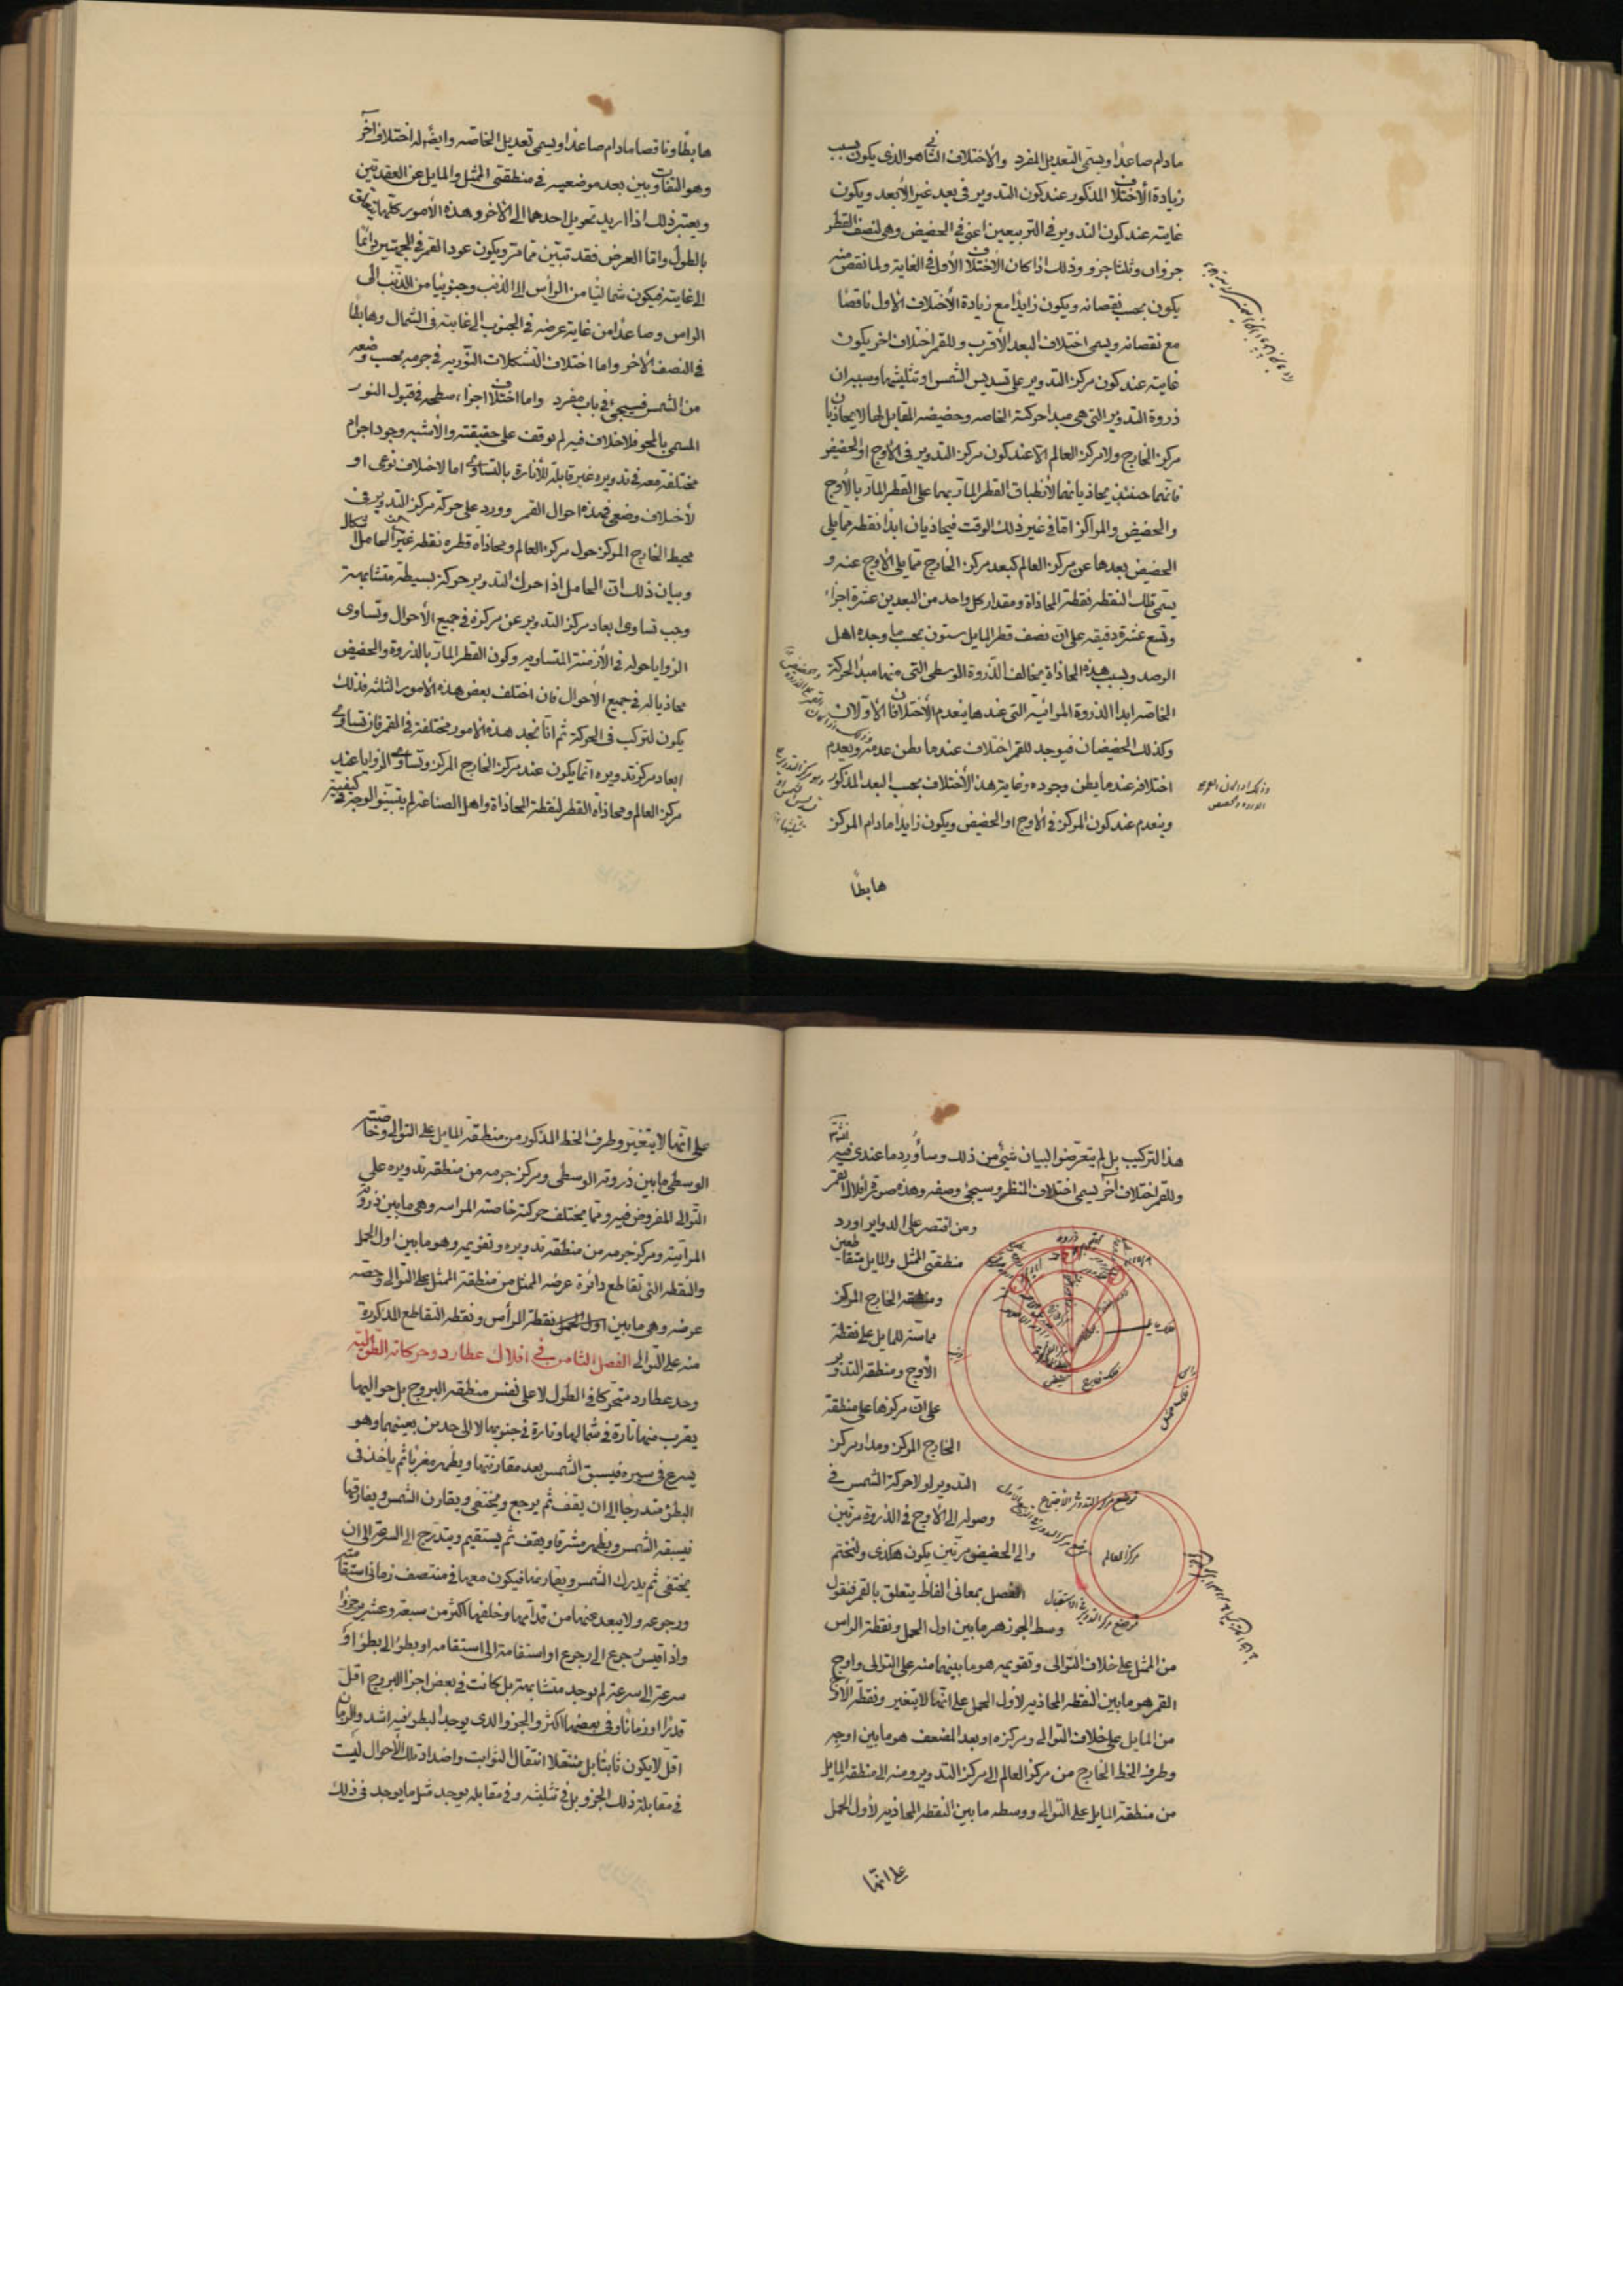 مادام صاعدا ويسمى التعديل المفرد والاختلاف الثانى هو الذى يكون بسبب
زيادة الأختلاف المذكور عند كون التدوير فى بعد غير الأبعد ويكون
غايته عند كون التدوير فى التربيعين اعنى فى الحضيض وهى لنصف القطر
جزوان وثلثا جزو وذلك اذا كان الاختلاف الأول فى الغاية ولما نقص منه
يكون بحسب نقصانه ويكون زايدا مع زيادة الأختلاف الأول ناقصا
مع نقصانه ويسمى اختلاف البعد الأقرب وللقمر اختلاف اخر يكون
غايته عند كون مركز التدوير على تسديس الشمس او تثليثها وسببه ان
ذروة التدوير التى هى مبدا حركة الخاصه وحضيضه المقابل لها لا يحاذيان
مركز الخارج ولا مركز العالم الا عند كون مركز التدوير فى الأوج او الحضيض
فانهما حينئذ يحاذيانهما لأنطباق القطر المار بهما على القطر المار بالأوج
والحضيض والمراكز اما فى غير ذلك الوقت فيحاذيان ابدا نقطه مما يلى
الحضيض بعدها عن مركز العالم كبعد مركز الخارج مما يلى الأوج عنه و
يسمى تلك النقطه نقطة المحاذاة ومقدار كل واحد من البعدين عشرة اجزاء
وتسع عشرة دقيقه على ان نصف قطر المايل ستون بحسب ما وجده اهل
الرصد وبسبب هذه المحاذاة يخالف الذروة الوسطى التى منها مبدأ الحركة
الخاصه ابدا الذروة المرائيه التى عندها ينعدم الأختلافان الأولان
وكذلك الحضيضان فيوجد للقمر اختلاف عند ما يظن عدمه ويعدم
اختلافه عند ما يظن وجوده وغاية هذا الأختلاف بحسب البعد المذكور
وينعدم عند كون المركز فى الأوج او الحضيض ويكون زايدا مادام المركز
هابطا
هابطا وناقصا مادام صاعدا ويسمى تعديل الخاصه وايضا له اختلاف اخر
وهو التفاوت بين بعد موضعيه فى منطقتى الممثل والمايل عن العقدتين
ويعتبر ذلك اذا اريد تحويل احدهما الى الاخر وهذه الأمور كلها يتعلق
بالطول واما العرض فقد تبين مما مر ويكون عود القمر فى الجهتين دائما
الى غايته فيكون شماليا من الرأس الى الذنب وجنوبيا من الذنب الى
الراس وصاعدا من غاية عرضه فى الجنوب الى غايته فى الشمال وهابطا
فى النصف الأخر واما اختلاف التشكلات النوريه فى جرمه بحسب وضعه
من الشمس فسيجئ فى باب مفرد واما اختلاف اجزاء سطحه فى قبول النور
المسمى بالمحو فلا خلاف فيه لم يوقف على حقيقته والأشبه وجود اجرام
مختلفة معه فى تدويره غير قابلة للأنارة بالتساوى اما لاختلاف نوعى او
لأختلاف وضعى فهذه احوال القمر وورد على حركة مركز التدوير فى
محيط الخارج المركز حول مركز العالم ومحاذاة قطره نقطه غير مركز الحامل اشكال
وبيان ذلك ان الحامل اذا حرك التدوير حركة بسيطة متشابهة
وجب تساوى ابعاد مركز التدوير عن مركزه فى جميع الأحوال وتساوى
الزوايا حوله فى الأزمنة المتساويه وكون القطر المار بالذروة والحضيض
محاذيا له فى جميع الأحوال فان اختلف بعض هذه الأمور الثلثه فذلك
يكون لتركب فى الحركة ثم انا نجد هذه الامور مختلفة فى القمر فان تساوى
ابعاد مركز تدويره انما يكون عند مركز الخارج المركز وتساوى الزوايا عند
مركز العالم ومحاذاة القطر لنقطة المحاذاة واهل الصناعة لم يتبينوا الوجه فى كيفيته
هذا التركيب بل لم يتعرضوا لبيان شئ من ذلك وسأورد ما عندى فيه
وللقمر اختلاف آخر يسمى اختلاف المنظر وسيجئ وصفه وهذه صورة افلاك القمر
ومن اقتصر على الدواير اورد
منطقتى الممثل والمايل متقاطعين
ومنطقه الخارج المركز
مماسة للمايل على نقطة
الأوج ومنطقه التدوير
على ان مركزها على منطقة
الخارج المركز ومدار مركز
التدوير لولا حركة الشمس فى
وصوله الى الأوج فى الذروة مرتين
والى الحضيض مرتين يكون هكذى ولنختم
الفصل بمعانى الفاظ يتعلق بالقمر فنقول
وسط الجوزهر ما بين اول الحمل ونقطة الراس
من الممثل على خلاف التوالى وتقويمه هو ما بينهما منه على التوالى واوج
القمر هو ما بين النقطه المحاذيه لأول الحمل على انها لا يتغير ونقطة الأوج
من المايل على خلاف التوالى ومركزه او بعد المضعف هو ما بين اوجه
وطرف الخط الخارج من مركز العالم الى مركز التدوير ومنه الى منطقة المايل
من منطقة المايل على التوالى ووسطه ما بين النقطه المحاذيه لأول الحمل
ذروة
فلك خارج
حضيض
فلك ممثل
مركز العالم
على انها
على انها لا يتغير وطرف الخط المذكور من منطقة المايل على التوالى وخاصته
الوسطى ما بين ذروته الوسطى ومركز جرمه من منطقه تدويره على
التوالى المفروض فيه وبما يختلف حركة خاصته المراسه وهى ما بين ذروته
المرآيته ومركز جرمه من منطقه تدويره وتقويمه وهو ما بين اول الحمل
والنقطه التى تقاطع دائرة عرضه الممثل من منطقة الممثل على التوالى وحصه
عرضه وهى ما بين اول الحمل نقطة الرأس ونقطه التقاطع المذكورة
منه على التوالى الفصل الثامن فى افلاك عطارد وحركاته الطوليه
وجد عطارد متحركا فى الطول لا على نفس منطقه البروج بل حواليها
يقرب منها تارة فى شمالها وتارة فى جنوبها لا الى حدين بعينهما وهو
يسرع فى سيره فيسبق الشمس بعد مقارنتها ويظهر مغربا ثم ياخذ فى
البطؤ متدرجا الى ان يقف ثم يرجع ويختفى ويقارن الشمس ويفارقها
فيسبقه الشمس ويظهر مشرقا ويقف ثم يستقيم ويتدرج الى السرعة الى ان
يختفى ثم يدرك الشمس ويقارنها فيكون معها فى منتصف زمانى استقامته
ورجوعه ولا يبعد عنها من قدامها وخلفها اكثر من سبعة وعشرين جزوا
واذا قيس رجوع الى رجوع او استقامة الى استقامه او بطؤ الى بطؤ او
سرعة الى سرعة لم يوجد متشابهة بل كانت فى بعض اجزا البروج اقل
قدرا وزمانا وفى بعضها اكثر والجزو الذى يوجد البطؤ فيه اشد والزمان
اقل لا يكون ثابتا بل منتقلا انتقال الثوابت واضداد تلك الأحوال ليست
فى مقابلة ذلك الجزو بل فى تثليثه وفى مقابله يوجد مثل ما يوجد فى ذلك